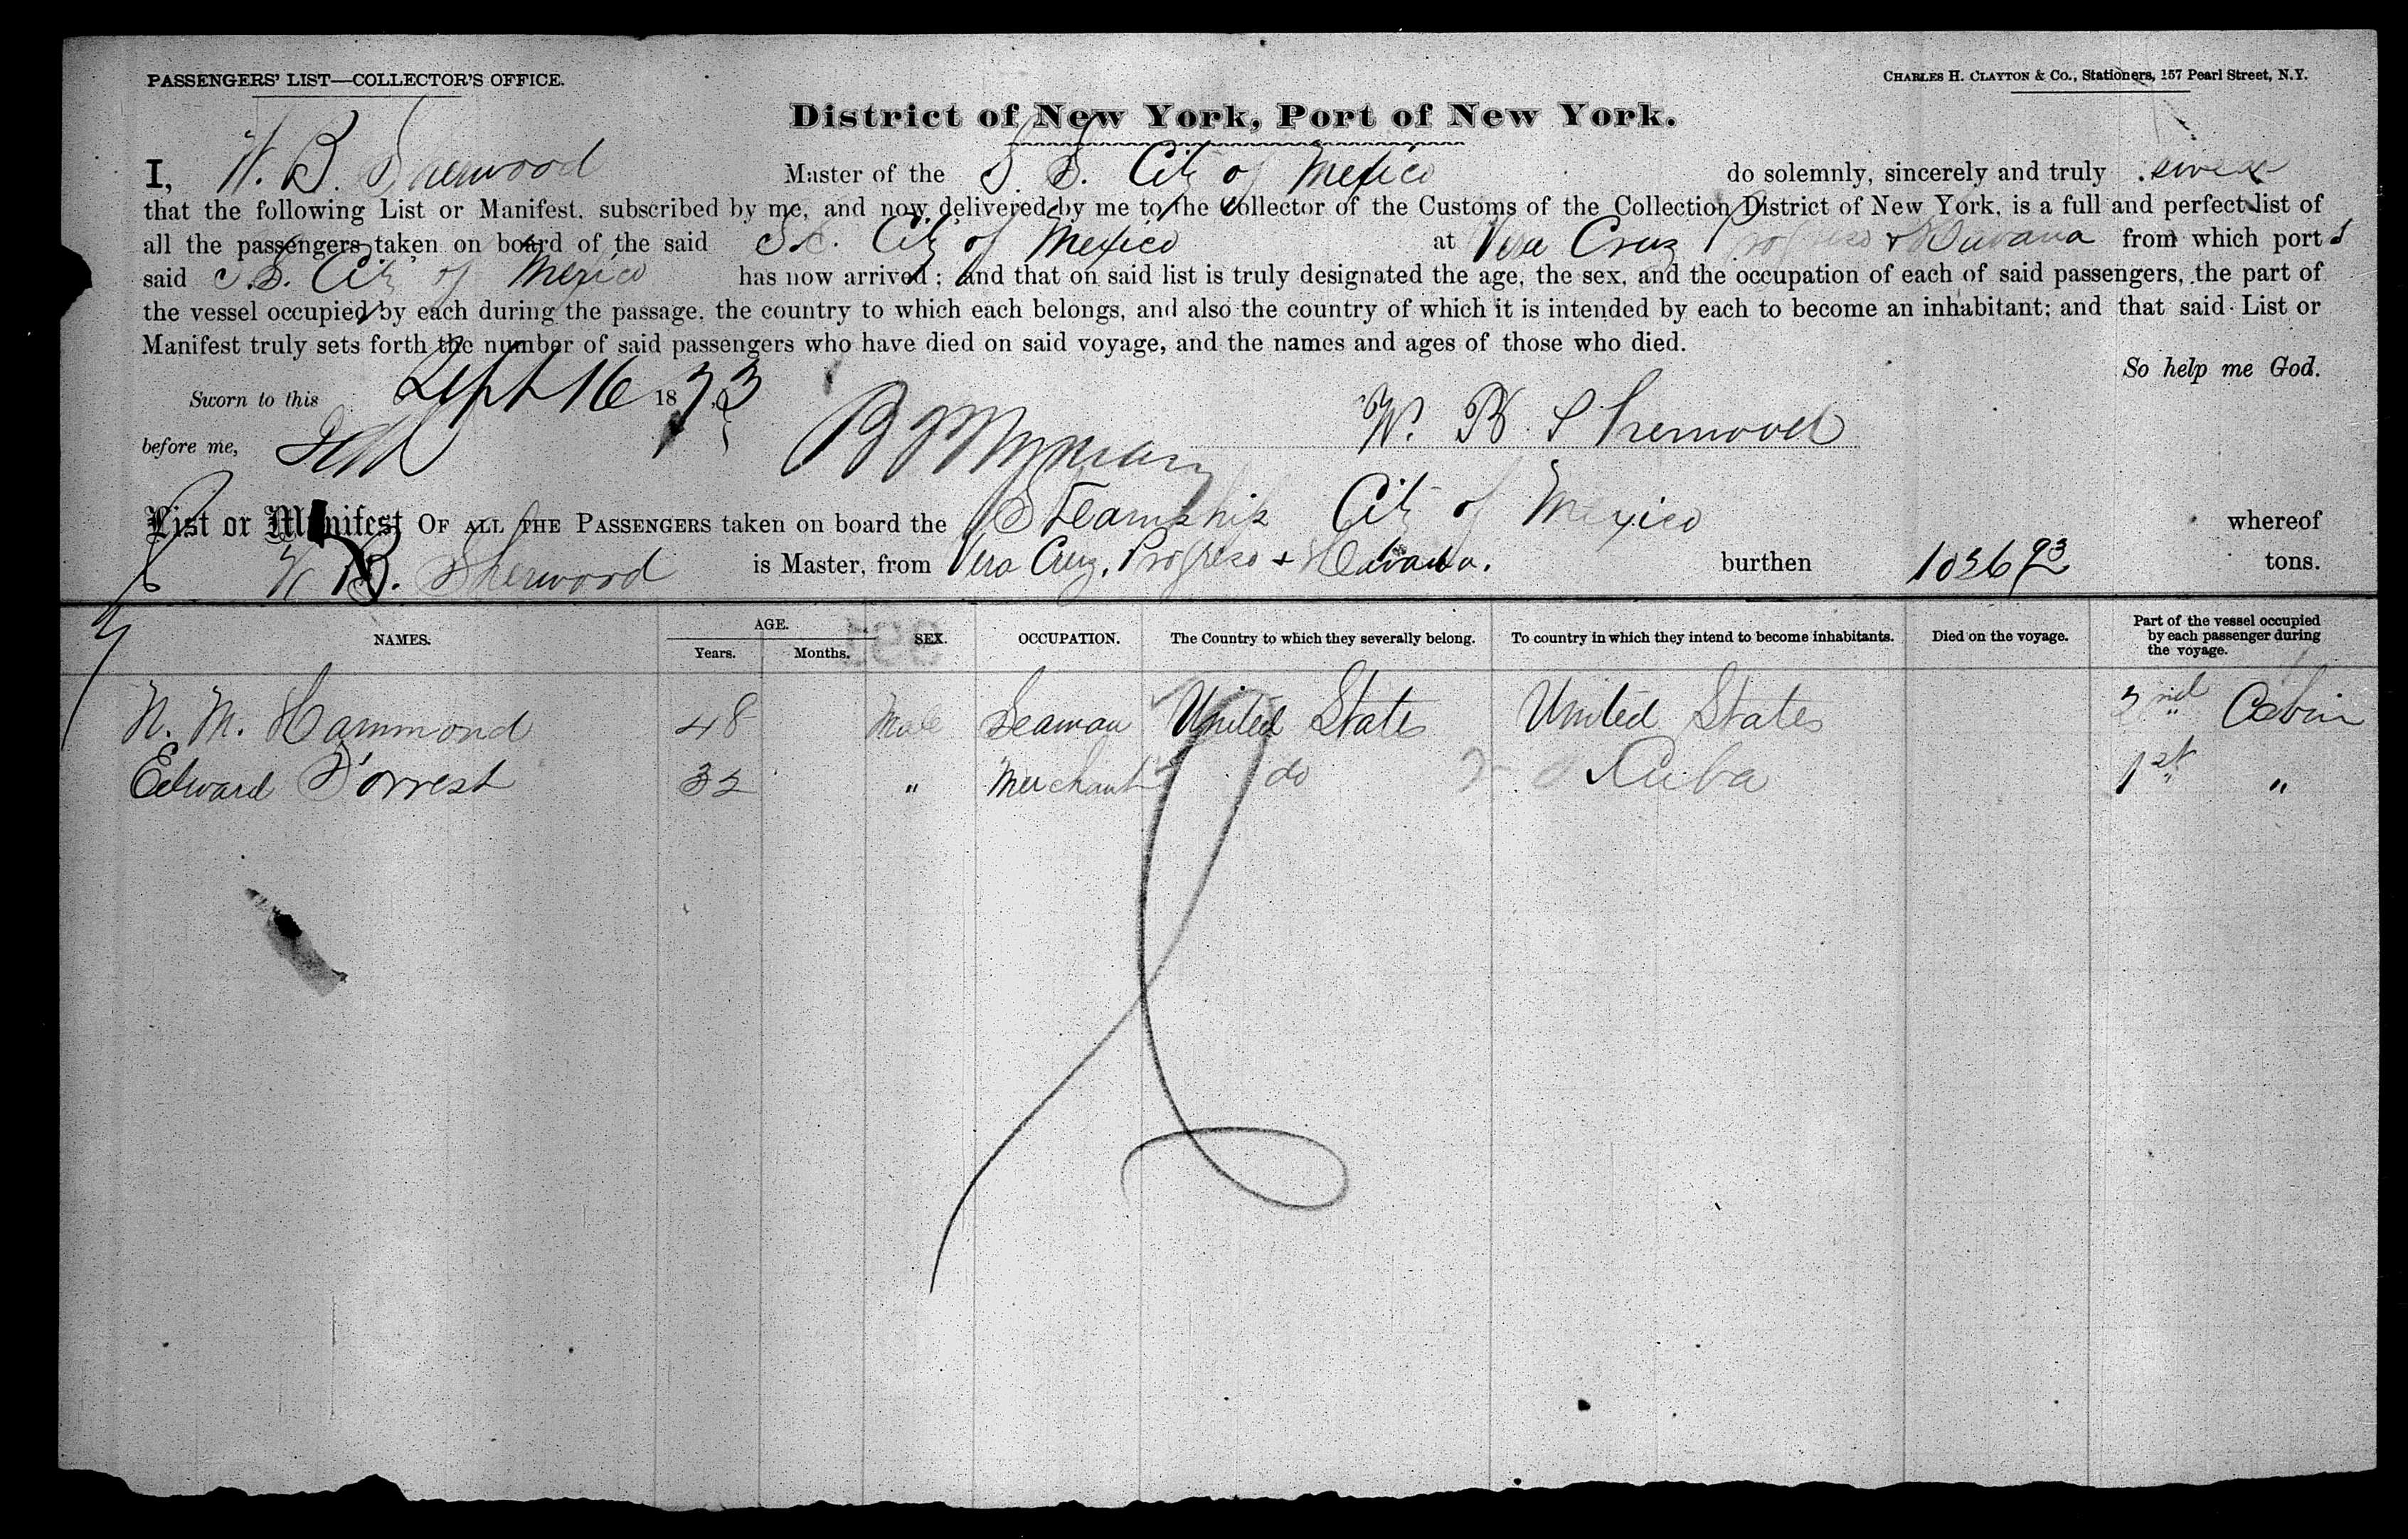 PASSENGERS' LIST—COLLECTOR'S OFFICE.
CHARLES H. CLAYTON & CO., Stationers, 157 Pearl Street, N.Y.
District of New York, Port of New York.
I, W. B. Sherwood Master of the S. S. City of Mexico do solemnly, sincerely and truly swear
that the following List or Manifest, subscribed by me, and now delivered by me to the Collector of the Customs of the Collection District of New York, is a full and perfect list of
all the passengers taken on board of the said S.S. City of Mexico at Vera Cruz Progreso & Havana from which ports
said S.S. City of Mexico has now arrived; and that on said list is truly designated the age, the sex, and the occupation of each of said passengers, the part of
the vessel occupied by each during the passage, the country to which each belongs, and also the country of which it is intended by each to become an inhabitant; and that said List or
Manifest truly sets forth the number of said passengers who have died on said voyage, and the names and ages of those who died.
So help me God.
Sworn to this Sept 16 1873
W. B. Sherwood
before me,
List or Manifest OF ALL THE PASSENGERS taken on board the Steamship City of Mexico whereof
W. B. Sherwood is Master, from Vera Cruz, Progreso & Havana. burthen 1036 93 tons.
NAMES. AGE. Years. Months. SEX. OCCUPATION. The Country to which they severally belong. To country in which they intend to become inhabitants. Died on the voyage. Part of the vessel occupied by each passenger during the voyage.
N. M. Hammond 48 Male Seaman United States United States 2nd Cabin
Edward Forrest 32 " Merchant do Cuba 1st "